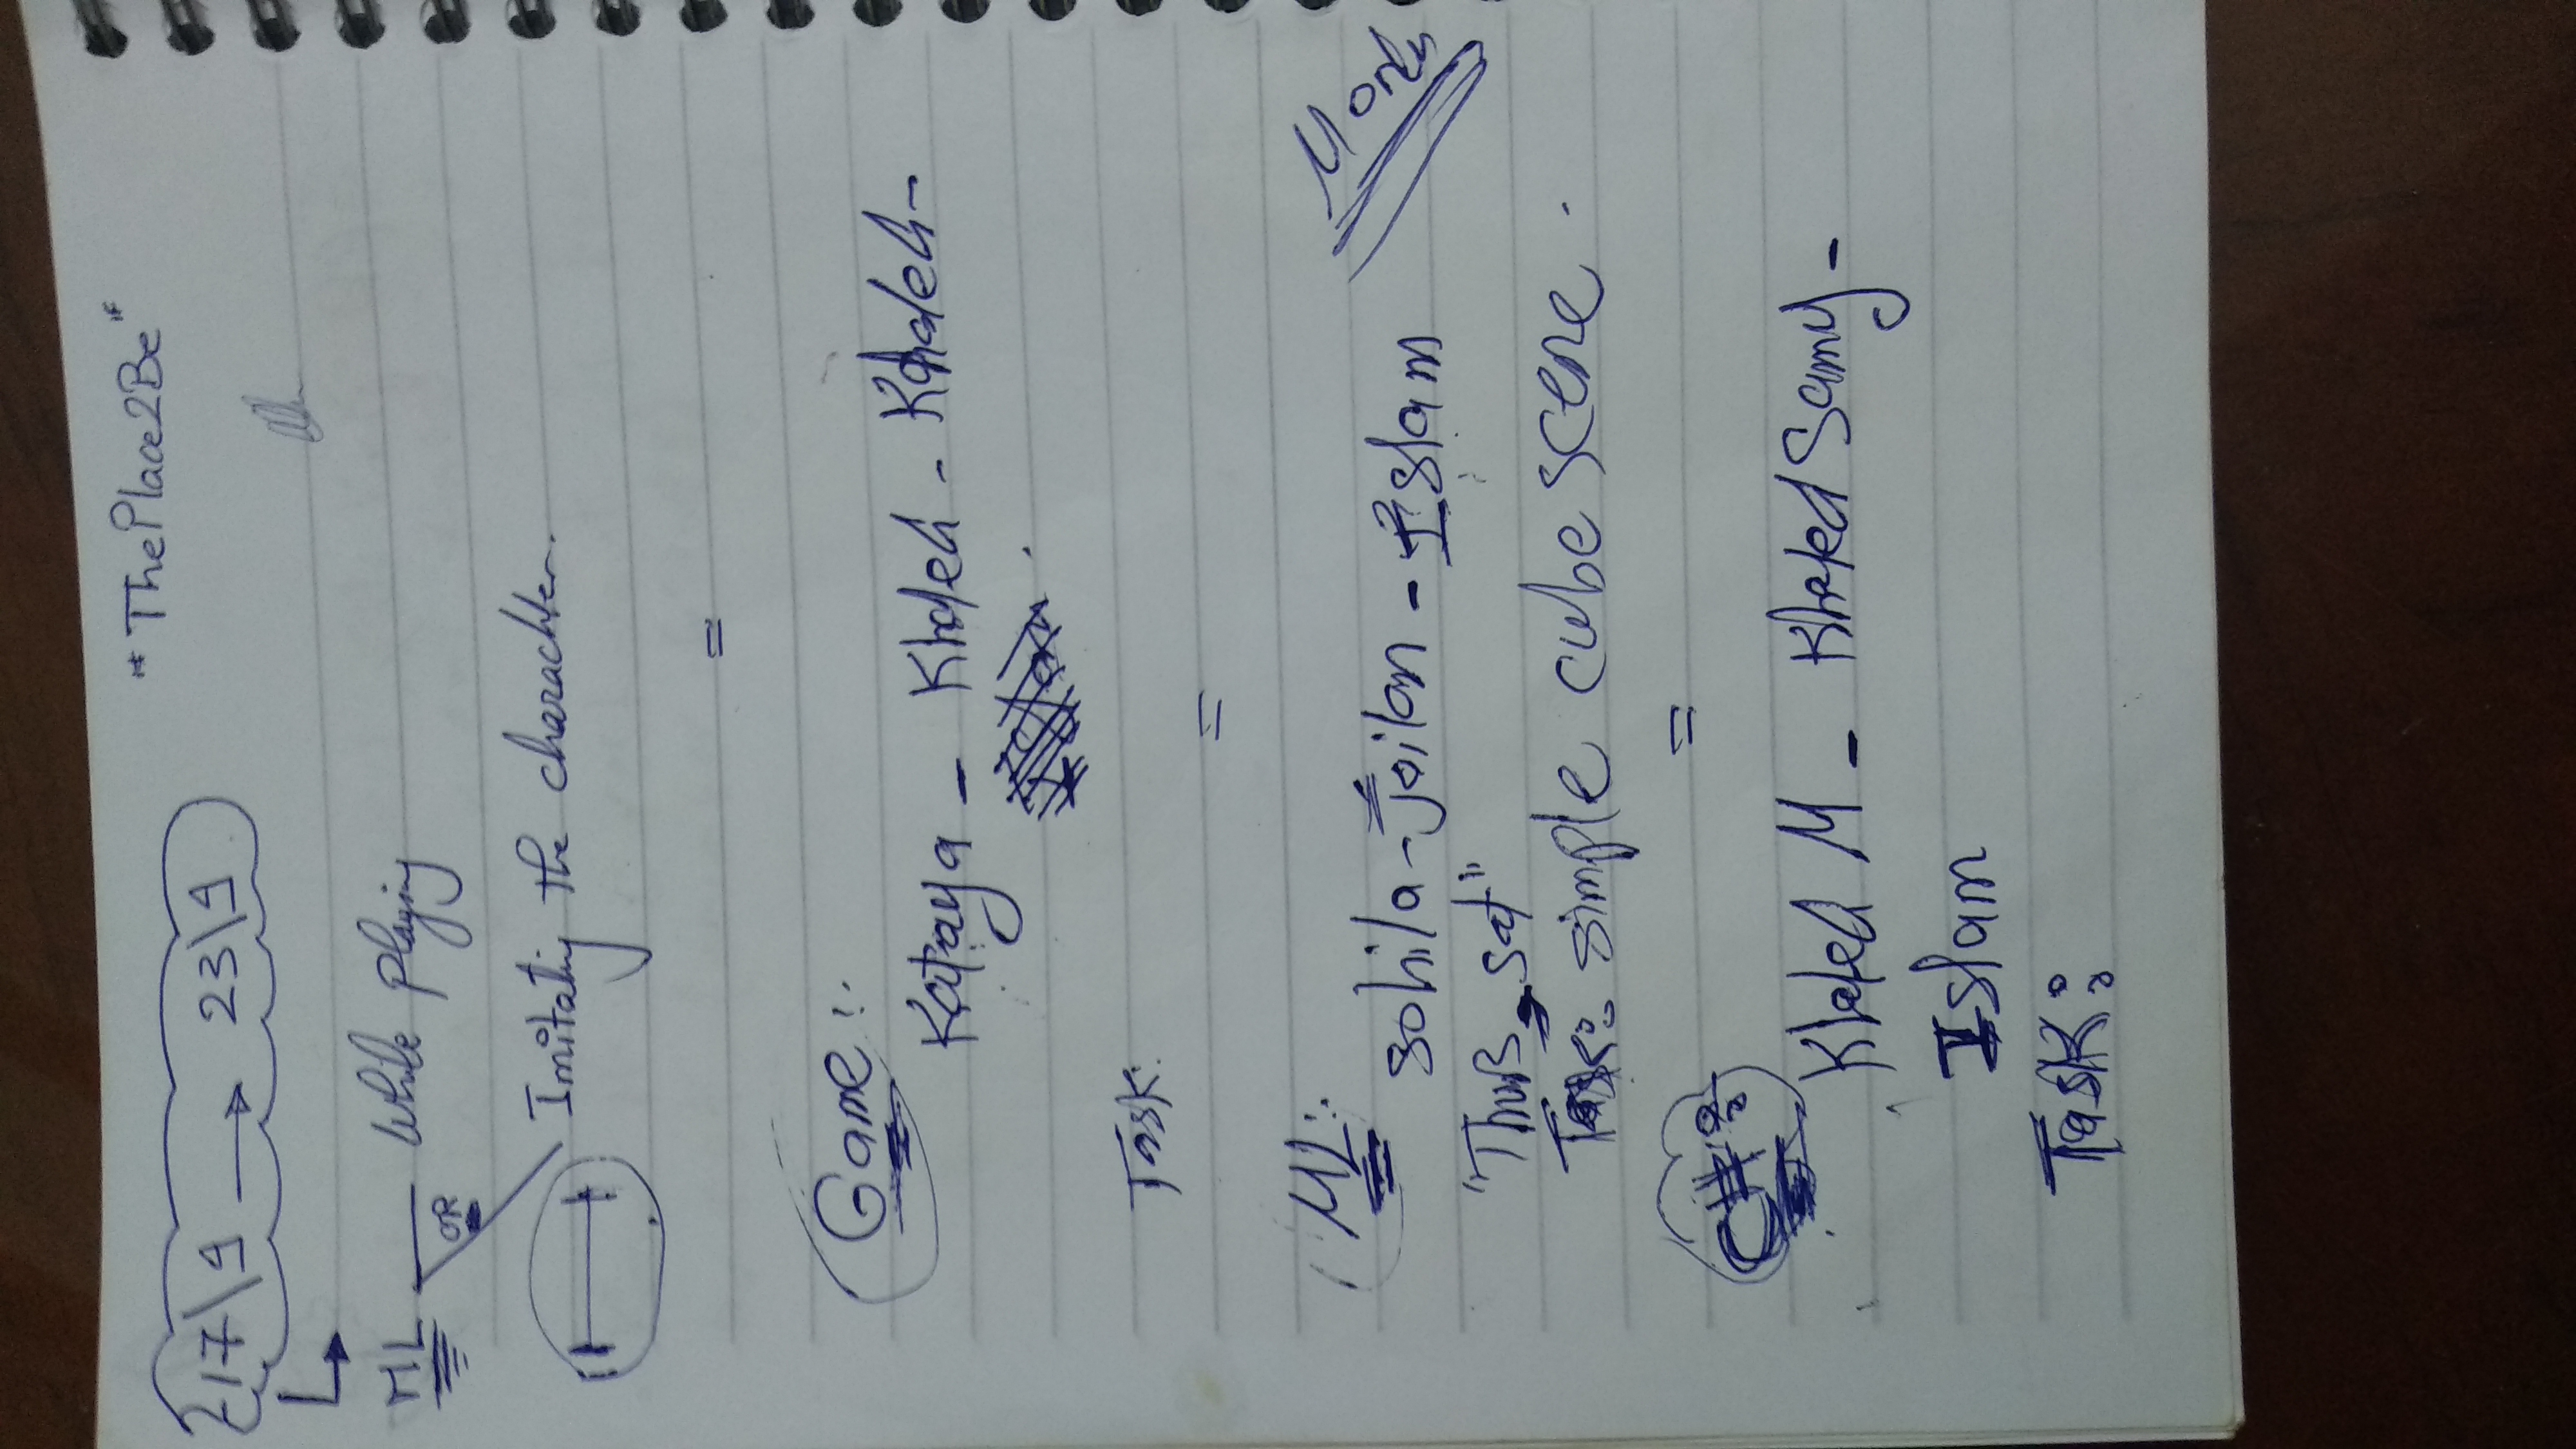 "ThePlace2Be"
17\9 → 23\9
ML — While playing
OR
Imitating the charachter.
=
Game:
Kataya - Khaled - Khaled -
Task:
=
ML:
sohila - Jailan - Islam
"Thurs - Sat"
Task: simple cube scene.
=
C#:
Khaled M - Khaled Samy -
Islam
Task: